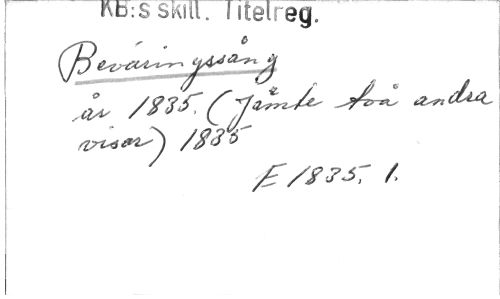 KB:s skill. Titelreg.
Beväringssång
år 1835. (Jämte två andra
visor) 1835
E 1835. 1.